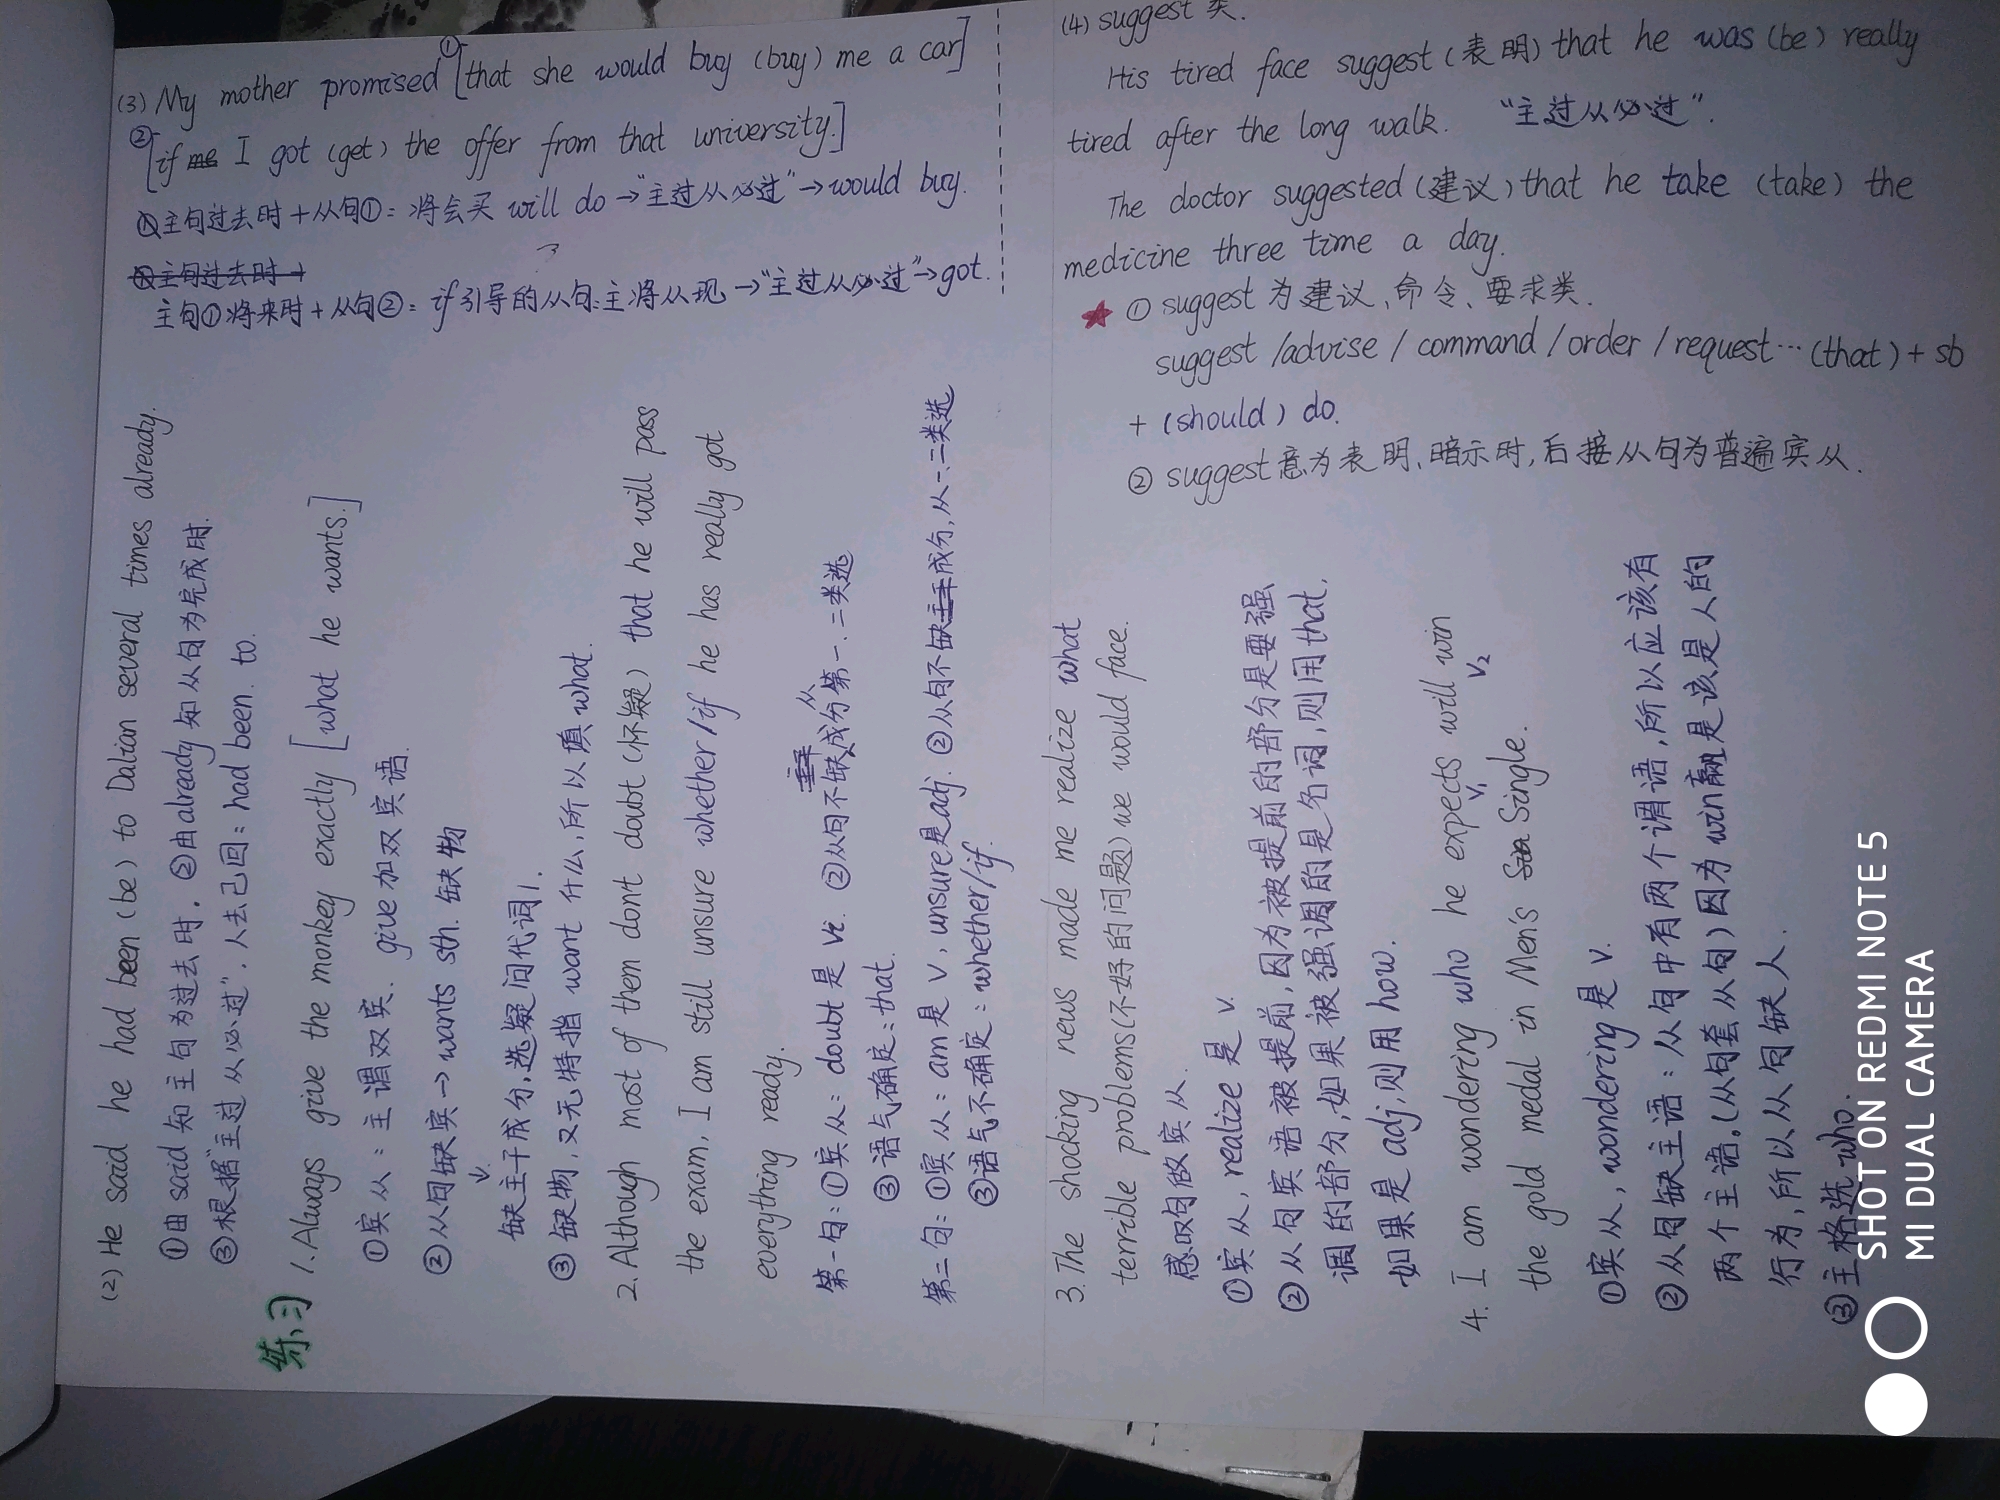 (3) My mother promised ①[that she would buy (buy) me a car]
②[if me I got (get) the offer from that university.]
主句过去时+从句①：将会买 will do→"主过从必过"→would buy.
主句过去时+
主句①将来时+从句②：if引导的从句：主将从现→"主过从必过"→got.
(4) suggest 类.
His tired face suggest (表明) that he was (be) really
tired after the long walk. "主过从必过".
The doctor suggested (建议) that he take (take) the
medicine three time a day.
★ ① suggest 为建议、命令、要求类.
suggest /advise / command / order / request… (that) + sb
+ (should) do.
② suggest意为表明、暗示时,后接从句为普遍宾从.
(2) He said he had been (be) to Dalian several times already.
①由said知主句为过去时. ②由already知从句为完成时.
③根据"主过从必过". 人去已回：had been to.
练习
1. Always give the monkey exactly [what he wants.]
①宾从：主谓双宾. give加双宾语.
②从句缺宾→wants sth. 缺物
v.
缺主干成分,选疑问代词1.
③缺物,又无特指want什么,所以填what.
2. Although most of them don't doubt (怀疑) that he will pass
the exam, I am still unsure whether/if he has really got
everything ready.
第一句：①宾从：doubt是vt. ②从句不缺成分第一.二类选
从
③语气确定：that.
第二句：①宾从：am是v, unsure是adj. ②从句不缺主干成分,从一.二类选
③语气不确定：whether/if.
3. The shocking news made me realize what
terrible problems(不好的问题) we would face.
感叹句做宾从.
①宾从, realize是v.
②从句宾语被提前,因为被提前的部分是要强
调的部分,如果被强调的是名词,则用that.
如果是adj,则用how.
4. I am wondering who he expects will win
v₁ v₂
the gold medal in Men's Sin Single.
①宾从, wondering是v.
②从句缺主语：从句中有两个谓语,所以应该有
两个主语.(从句套从句)因为win赢是该是人的
行为,所以从句缺人.
③主格选who.
SHOT ON REDMI NOTE 5
MI DUAL CAMERA